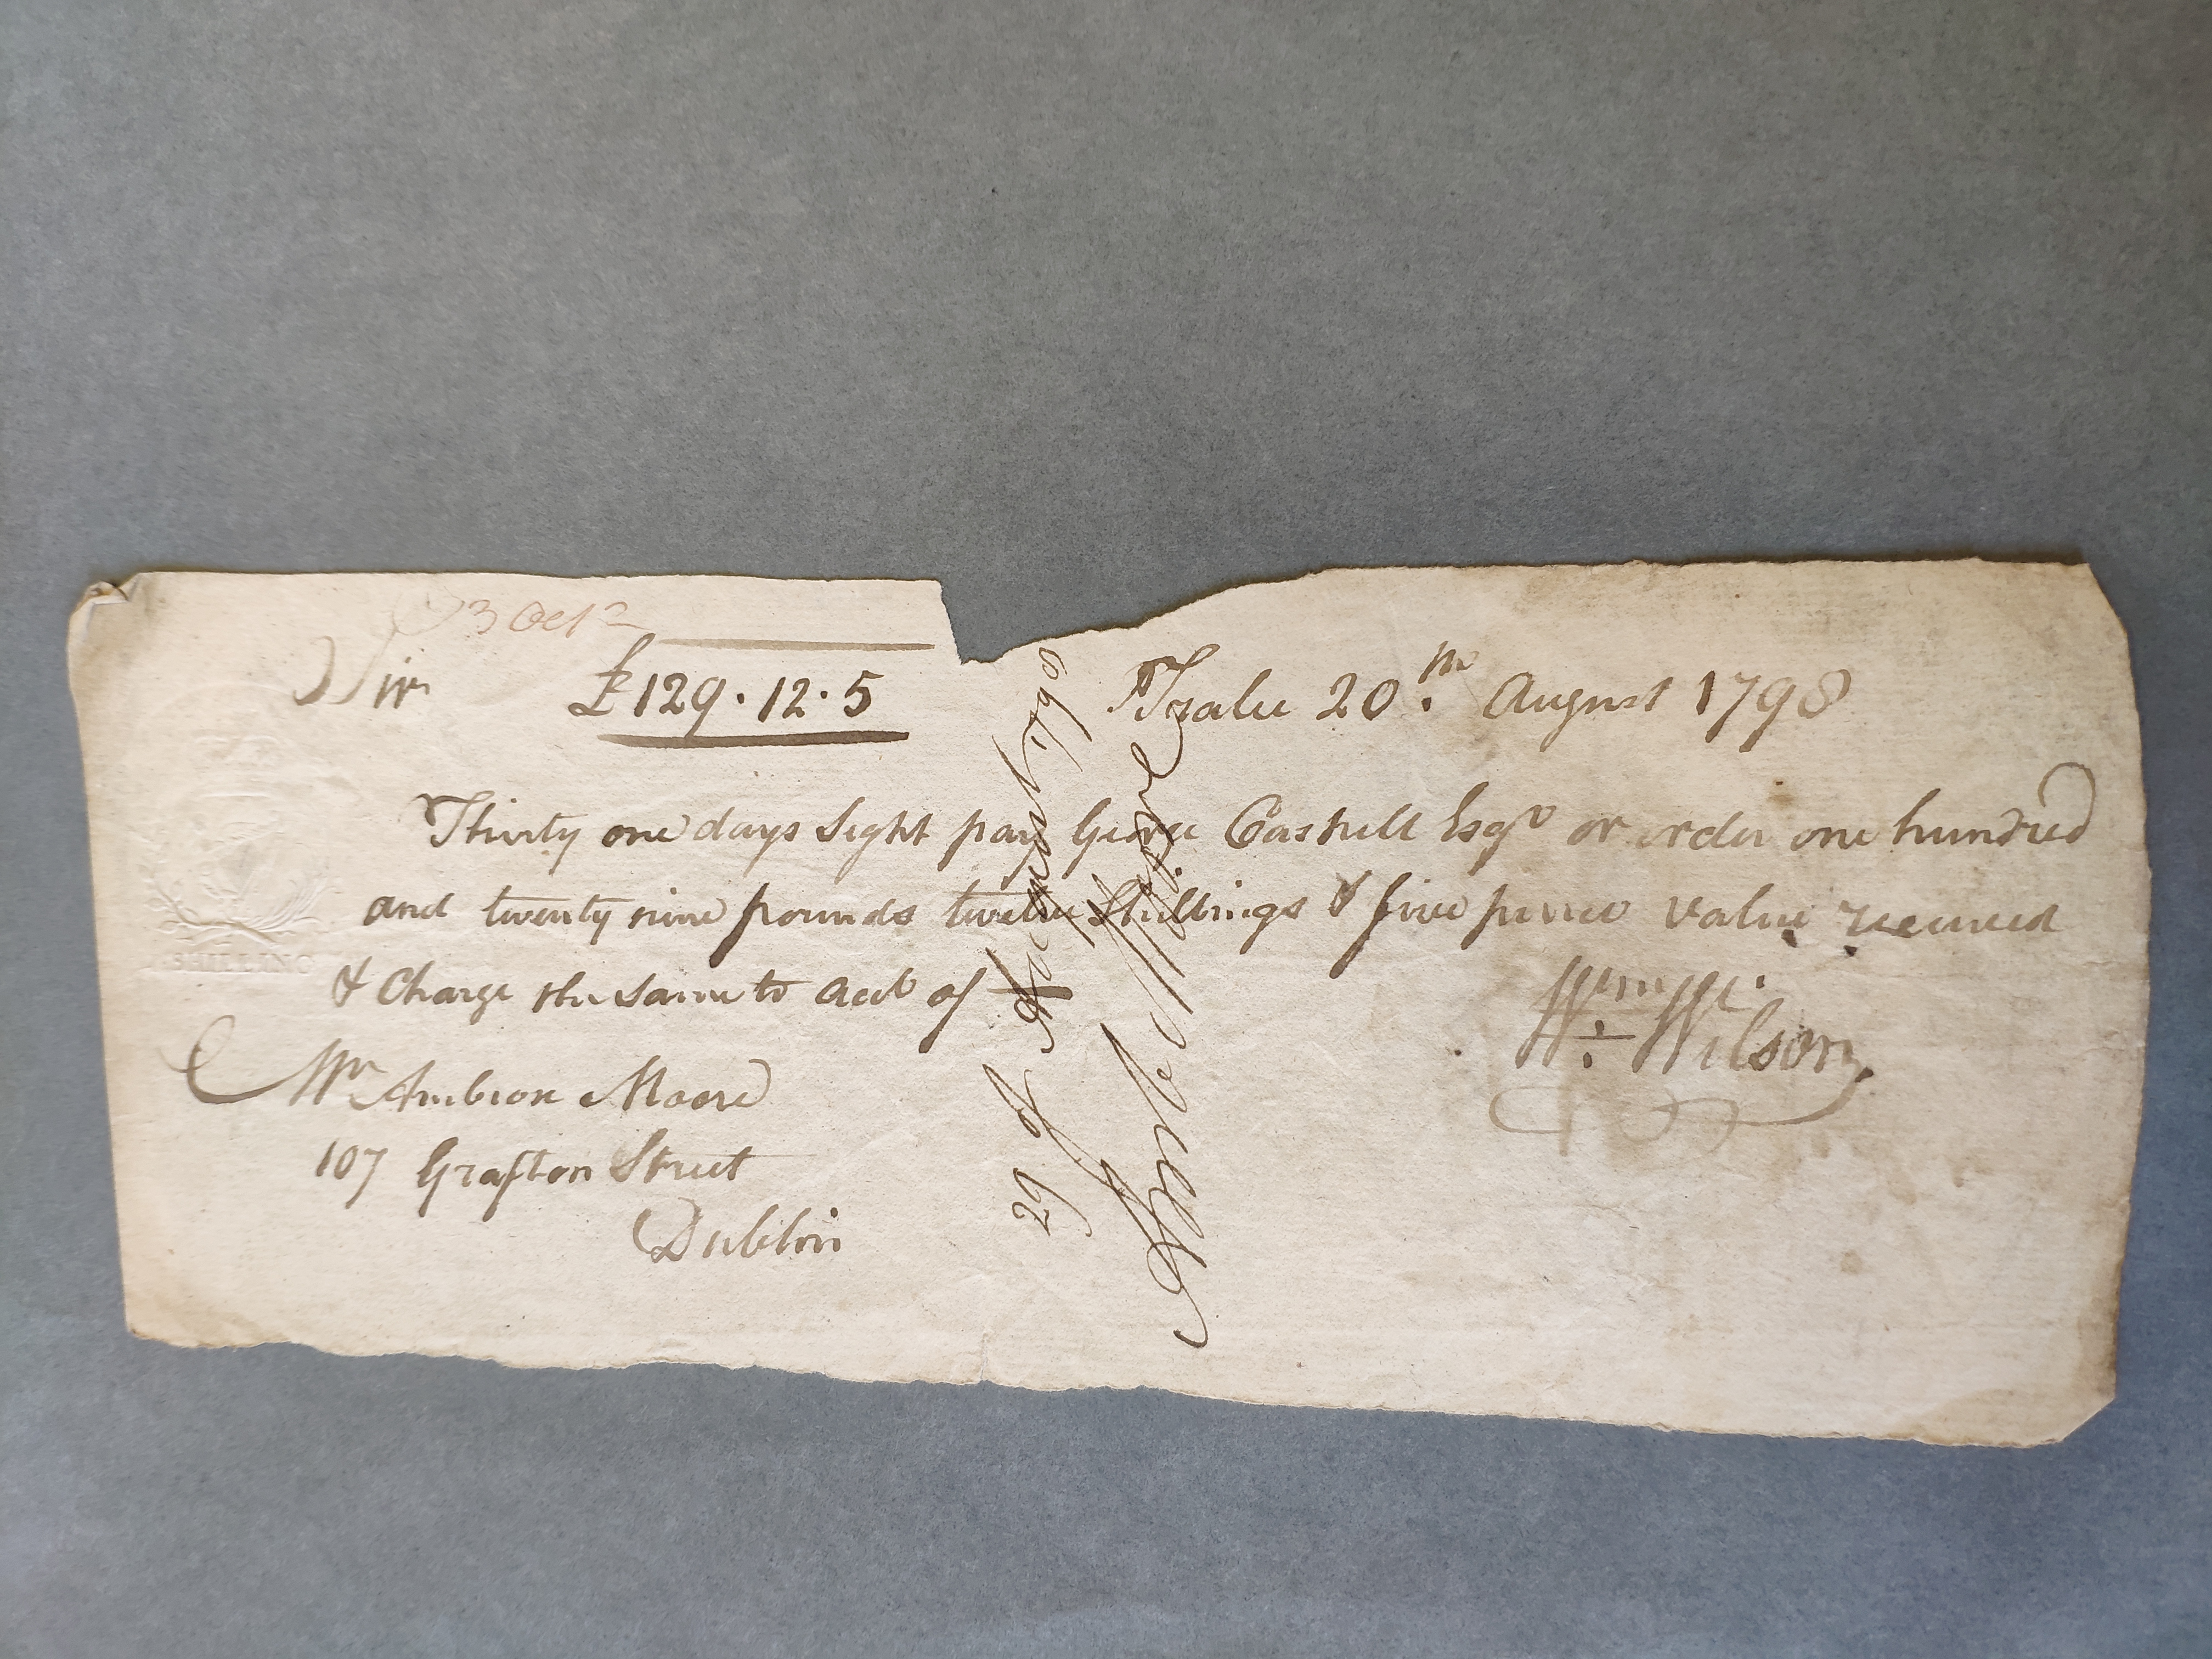 3 Oct
Sir £129.12.5 Tralee 20th. August 1798
Thirty one days Sight pay George Cashell Esqr or order one hundred
and twenty nine pounds twelve Shillings & five pence value received
& Charge the same to acct of
Wm Wilson
Mr Ambrose Moore
107 Grafton Street
Dublin
29 of August 1798
Moore
SHILLING